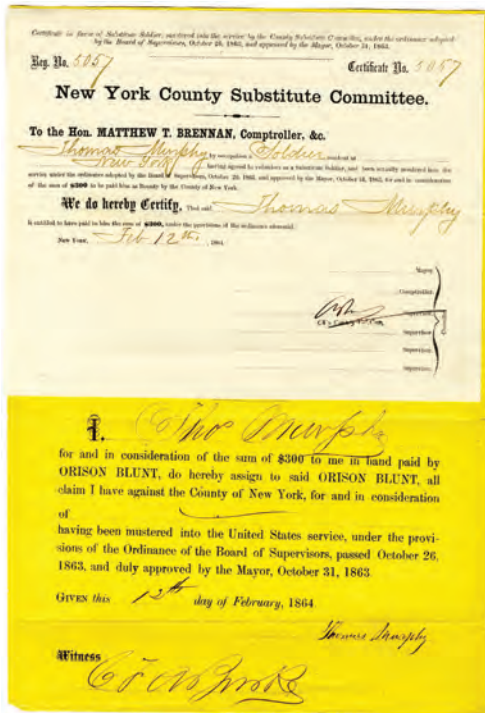 Certificate in favor of Substitute Soldier, mustered into the service by the County Substitute Committee, under the ordinance adopted
by the Board of Supervisors, October 26, 1863, and approved by the Mayor, October 31, 1863.
Reg. No. 5057 Certificate No. 5057
New York County Substitute Committee.
To the Hon. MATTHEW T. BRENNAN, Comptroller, &c.
Thomas Murphy by occupation a Soldier resident at
New York having agreed to volunteer as a Substitute Soldier, and been actually mustered into the
service under the ordinance adopted by the Board of Supervisors, October 26, 1863, and approved by the Mayor, October 31, 1863, for and in consideration
of the sum of $300 to be paid him as Bounty by the County of New York.
We do hereby Certify, That said Thomas Murphy
is entitled to have paid to him the sum of $300, under the provisions of the ordinance aforesaid.
New York, Feb 12th, 1864.
Mayor
Comptroller
Supervisor
Supervisor
Supervisor
I, Thos Murphy
for and in consideration of the sum of $300 to me in hand paid by
ORISON BLUNT, do hereby assign to said ORISON BLUNT, all
claim I have against the County of New York, for and in consideration
of
having been mustered into the United States service, under the provi-
sions of the Ordinance of the Board of Supervisors, passed October 26,
1863, and duly approved by the Mayor, October 31, 1863.
GIVEN this 12th day of February, 1864.
Thomas Murphy
Witness